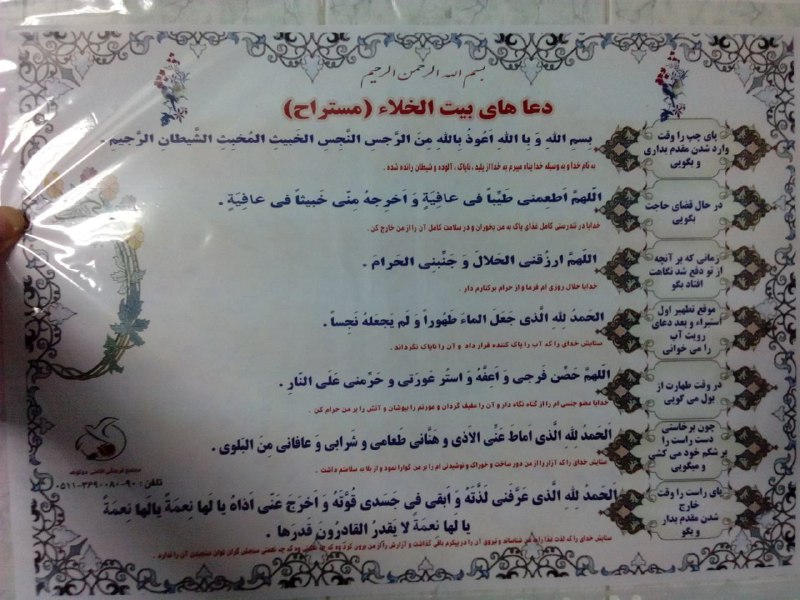 بسم الله الرحمن الرحیم
دعا های بیت الخلاء (مستراح)
پای چپ را وقت
وارد شدن مقدم بداری
و بگویی
بِسمِ الله وَ بِا الله اَعُوذُ بِالله مِنَ الرَّجسِ النَّجِسِ الخَبیثِ المُخبِثِ الشَّیطانِ الرَّجیم .
به نام خدا و به وسیله خدا پناه میبرم به خدا از پلید ، ناپاک ، آلوده و شیطان رانده شده .
در حال قضای حاجت
بگویی
اَللهمَّ اَطعمنی طَیِّباً فی عافِیَةٍ وَ اَخرِجهُ مِنّی خَبیثاً فی عافِیَةٍ .
خدایا در تندرستی کامل غذای پاک به من بخوران و در سلامت کامل آن را از من خارج کن .
زمانی که بر آنچه
از تو دفع شد نگاهت
افتاد بگو
اَللهمَّ ارزُقنی الحَلالَ وَ جَنِّبنِی الحَرامَ .
خدایا حلال روزی ام فرما و از حرام برکنارم دار .
موقع تطهیر اول
استبراء و بعد دعای
رویت آب
را می خوانی
الحَمدُ لِلهِ الَّذی جَعَلَ الماءَ طَهُوراً وَ لَم یَجعَلهُ نَجِساً .
ستایش خدای را که آب را پاک کننده قرار داد و آن را ناپاک نگرداند .
در وقت طهارت از
بول می گویی
اَللهمَّ حَصِّن فَرجی وَ اَعِفَّهُ وَ استُر عَورَتی وَ حَرِّمنی عَلَی النّارِ .
خدایا عضو جنسی ام را از گناه نگاه دار و آن را عفیف گردان و عورتم را بپوشان و آتش را بر من حرام کن .
چون برخاستی
دست راست را
بر شکم خود می کشی
و میگویی
اَلحَمدُ لِلهِ الَّذی اَماطَ عَنِّی الاَذی وَ هَنَّانی طَعامی وَ شَرابی وَ عافانی مِنَ البَلوی .
ستایش خدای را که آزار را از من دور ساخت و خوراک و نوشیدنی ام را بر من گوارا نمود و از بلا به سلامتم داشت .
پای راست را وقت
خارج
شدن مقدم بدار
و بگو
اَلحَمدُ لِلهِ الَّذی عَرَّفَنی لَذَّتَهُ وَ اَبقی فی جَسَدی قُوَّتَهُ وَ اَخرَجَ عَنّی اَذاهُ یا لَها نِعمَةً یالَها نِعمَةً
یا لَها نِعمَةً لا یَقدِرُ القادِرُونَ قَدرَها .
ستایش خدای را که لذت غذا را به من شناساند و نیروی آن را در پیکرم باقی گذاشت و آزارش را از من برون کرد
تلفن : ۹۰-۰۸۰-۳۶۹-۰۵۱۱